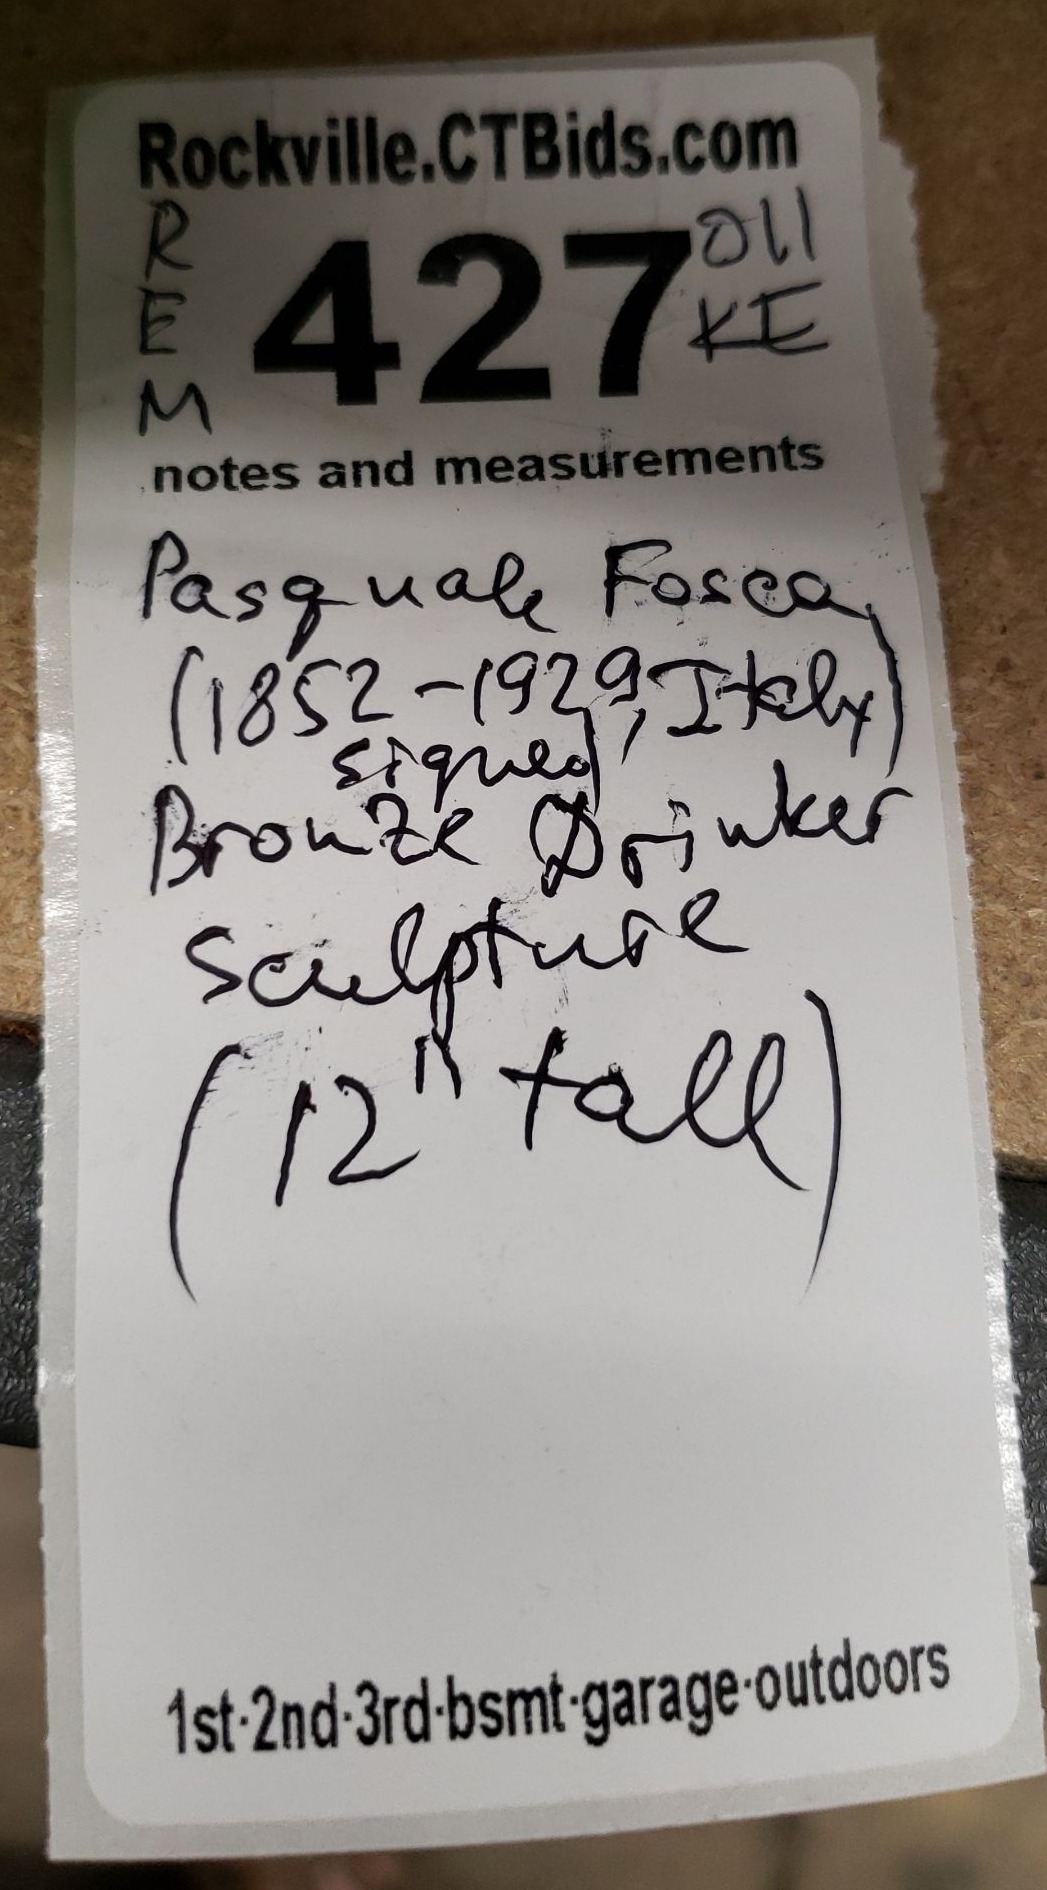 Rockville.CTBids.com
REM
427
011
KE
notes and measurements
Pasquale Fosca
(1852-1929, Italy)
signed
Bronze Drinker
Sculpture
(12" tall)
1st·2nd·3rd·bsmt·garage·outdoors